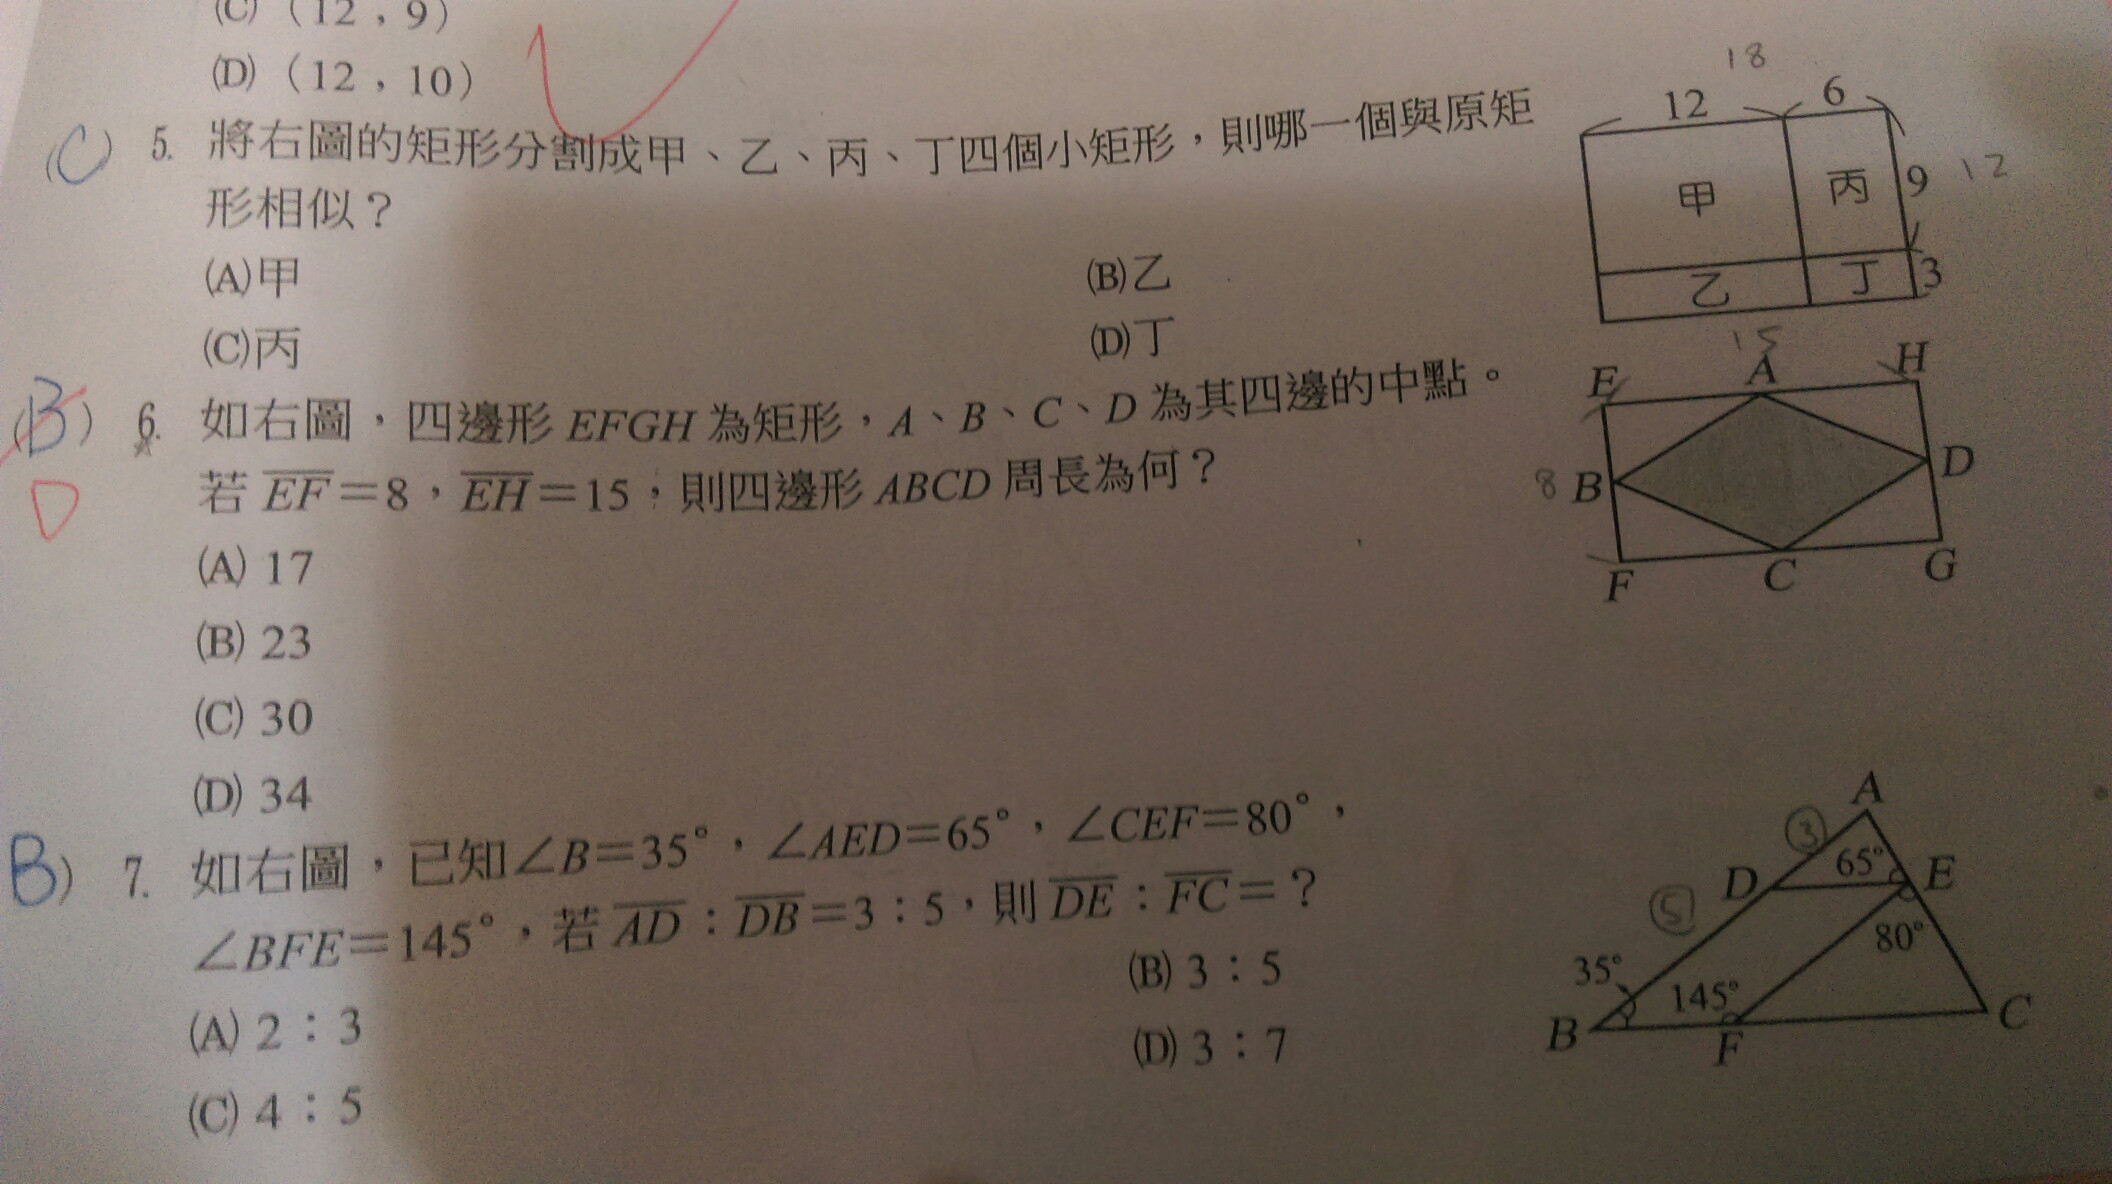 (C) (12，9)
(D) (12，10)
(C) 5. 將右圖的矩形分割成甲、乙、丙、丁四個小矩形，則哪一個與原矩
形相似？
(A)甲 (B)乙
(C)丙 (D)丁
18
12 6
甲 丙 9 12
乙 丁 3
(B) 6. 如右圖，四邊形 EFGH 為矩形，A、B、C、D 為其四邊的中點。
D 若 EF＝8，EH＝15，則四邊形 ABCD 周長為何？
(A) 17
(B) 23
(C) 30
(D) 34
15
E A H
8 B D
F C G
B) 7. 如右圖，已知∠B＝35°，∠AED＝65°，∠CEF＝80°，
∠BFE＝145°，若 AD：DB＝3：5，則 DE：FC＝？
(A) 2：3 (B) 3：5
(C) 4：5 (D) 3：7
A
③
D 65° E
⑤
80°
35° 145°
B F C